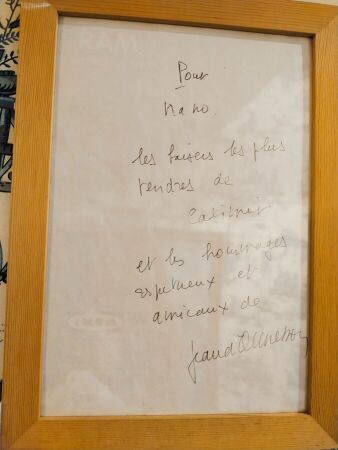 Pour
Nano,
les baisers les plus
tendres de
Casimir
et les hommages
respectueux et
amicaux de
Jean d'Ormesson
IKEA